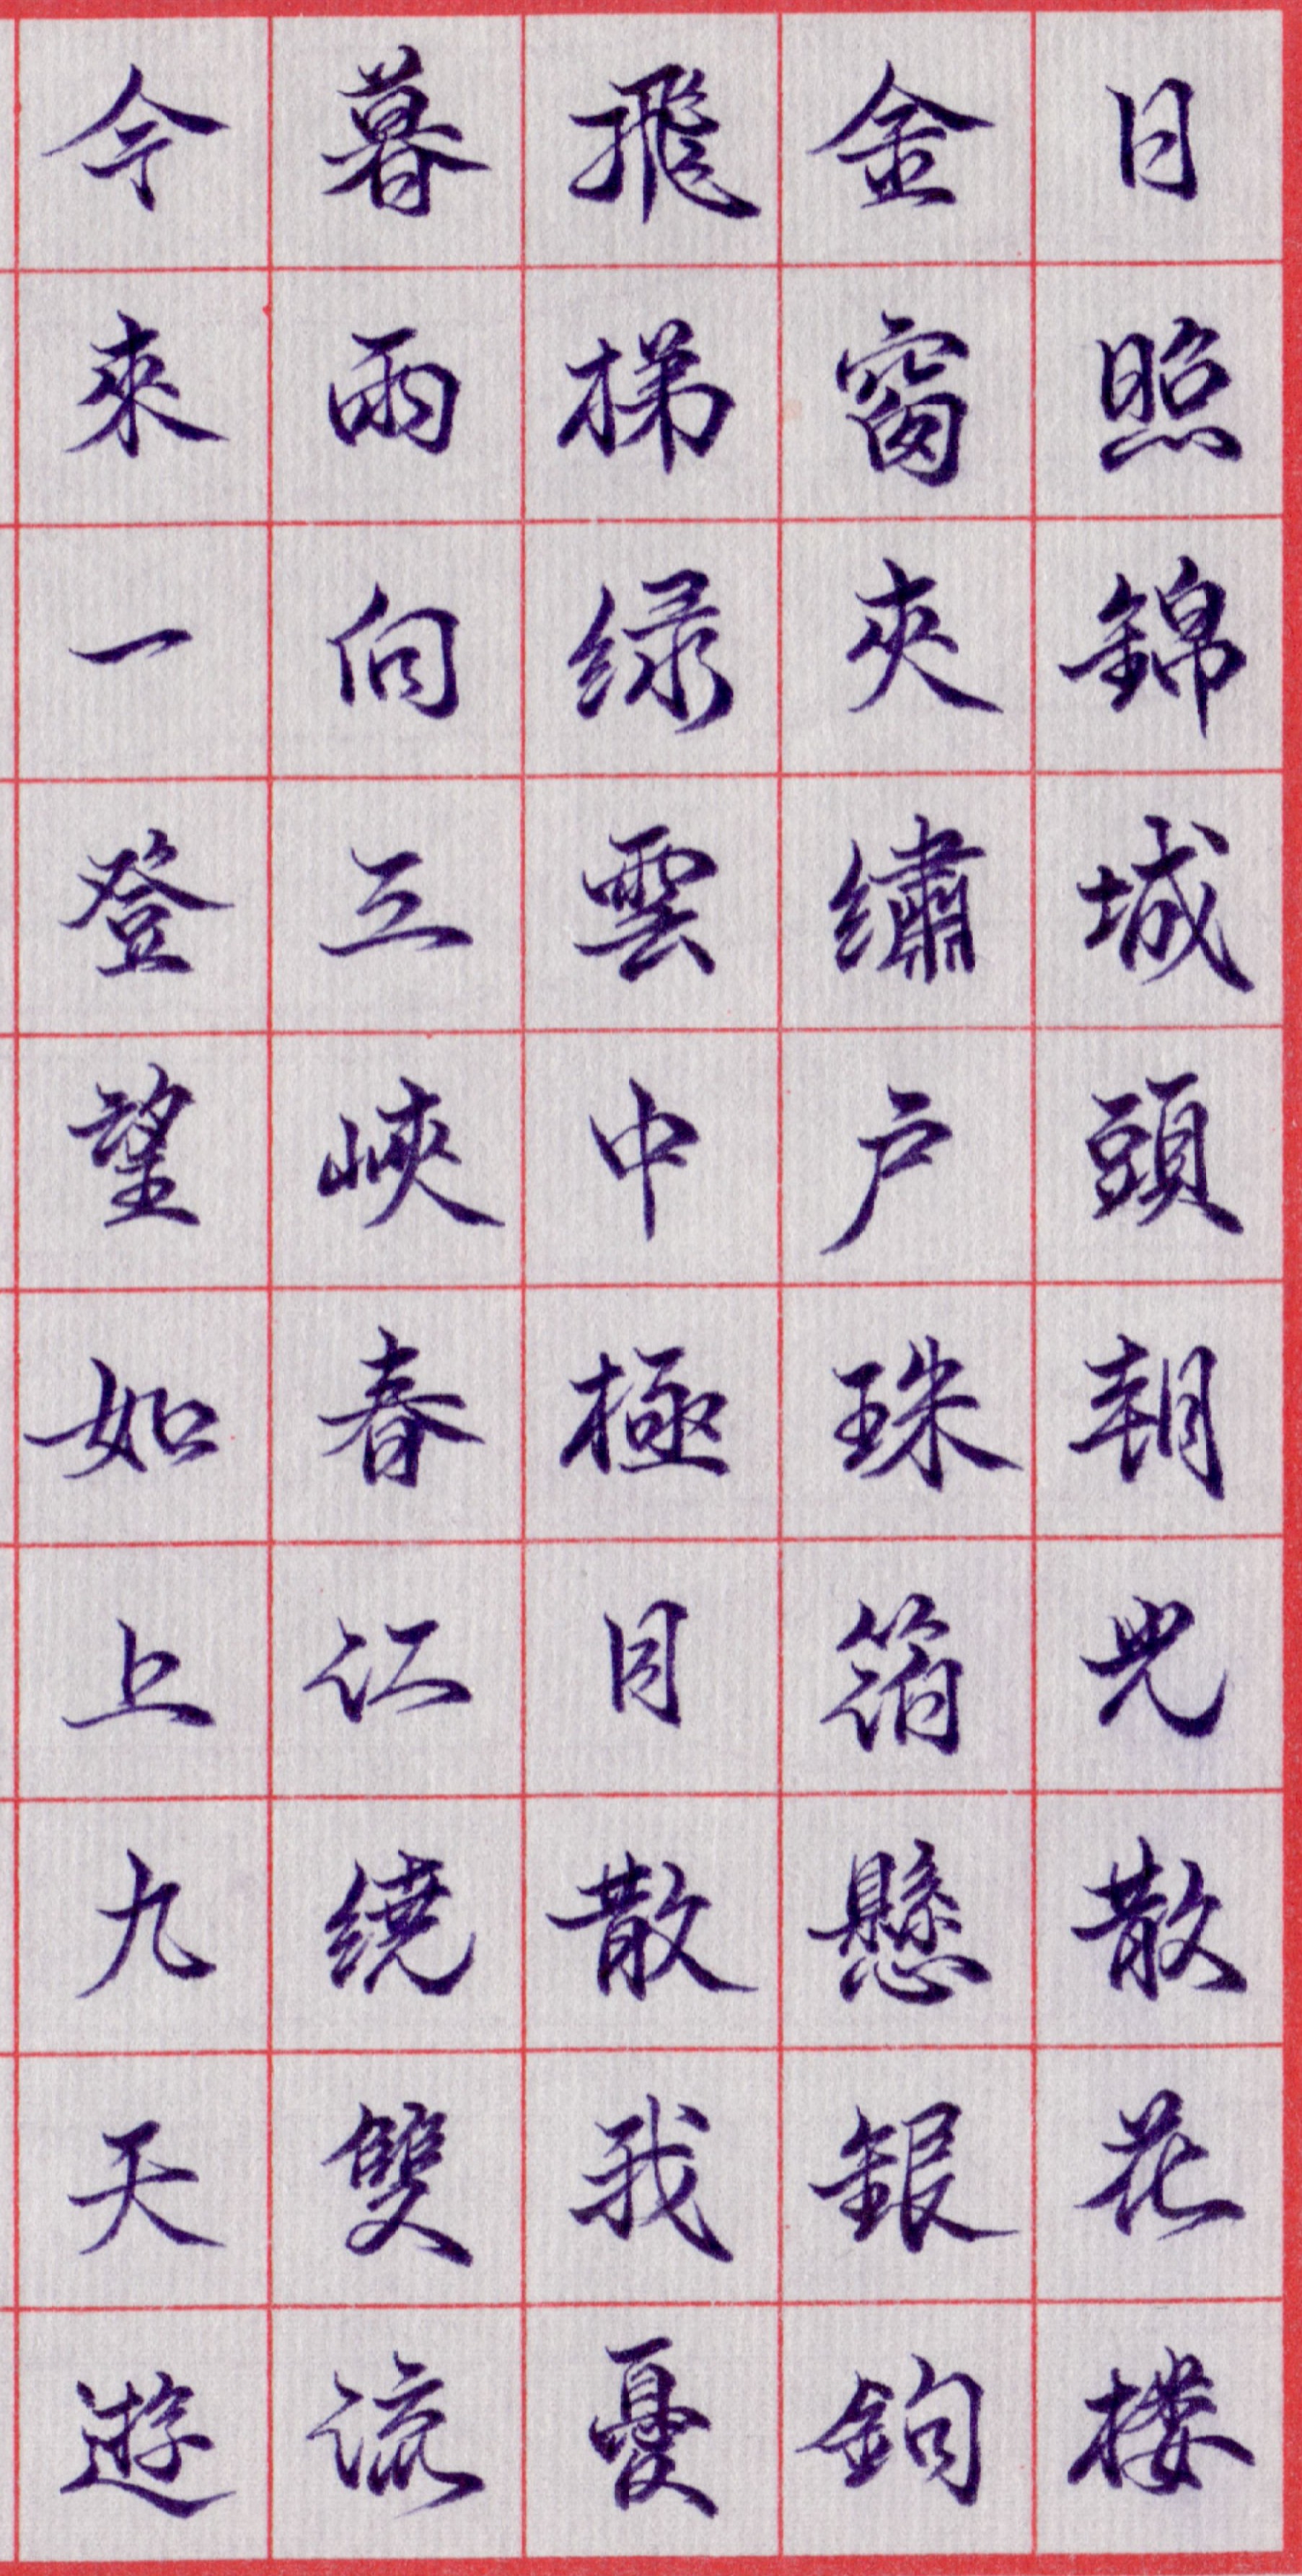 日照錦城頭朝光散花楼
金窗夾繡户珠箔懸銀鉤
飛梯绿雲中極目散我憂
暮雨向三峽春江繞雙流
今來一登望如上九天遊